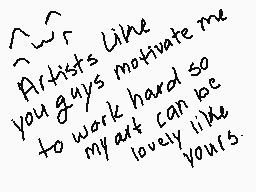 ^w^r
Artists like
you guys motivate me
to work hard so
my art can be
lovely like
yours.